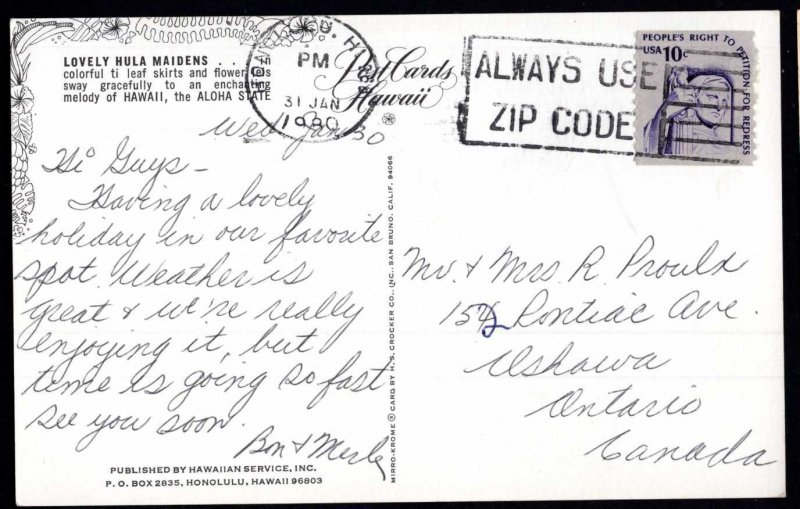 LOVELY HULA MAIDENS . . . in
colorful ti leaf skirts and flower leis
sway gracefully to an enchanting
melody of HAWAII, the ALOHA STATE
PM
31 JAN
1980
Post Cards
Hawaii
ALWAYS USE
ZIP CODE
PEOPLE'S RIGHT TO PETITION FOR REDRESS
USA 10c
Wed Jan 30
Hi Guys -
Having a lovely
holiday in our favorite
spot. Weather is
great & we're really
enjoying it, but
time is going so fast
see you soon.
& Merle
PUBLISHED BY HAWAIIAN SERVICE, INC.
P. O. BOX 2835, HONOLULU, HAWAII 96803
MIRRO-KROME ® CARD BY H. S. CROCKER CO., INC. SAN BRUNO, CALIF. 94066
Mr. & Mrs R. Proulx
Pontiac Ave.
Oshawa
Ontario
Canada